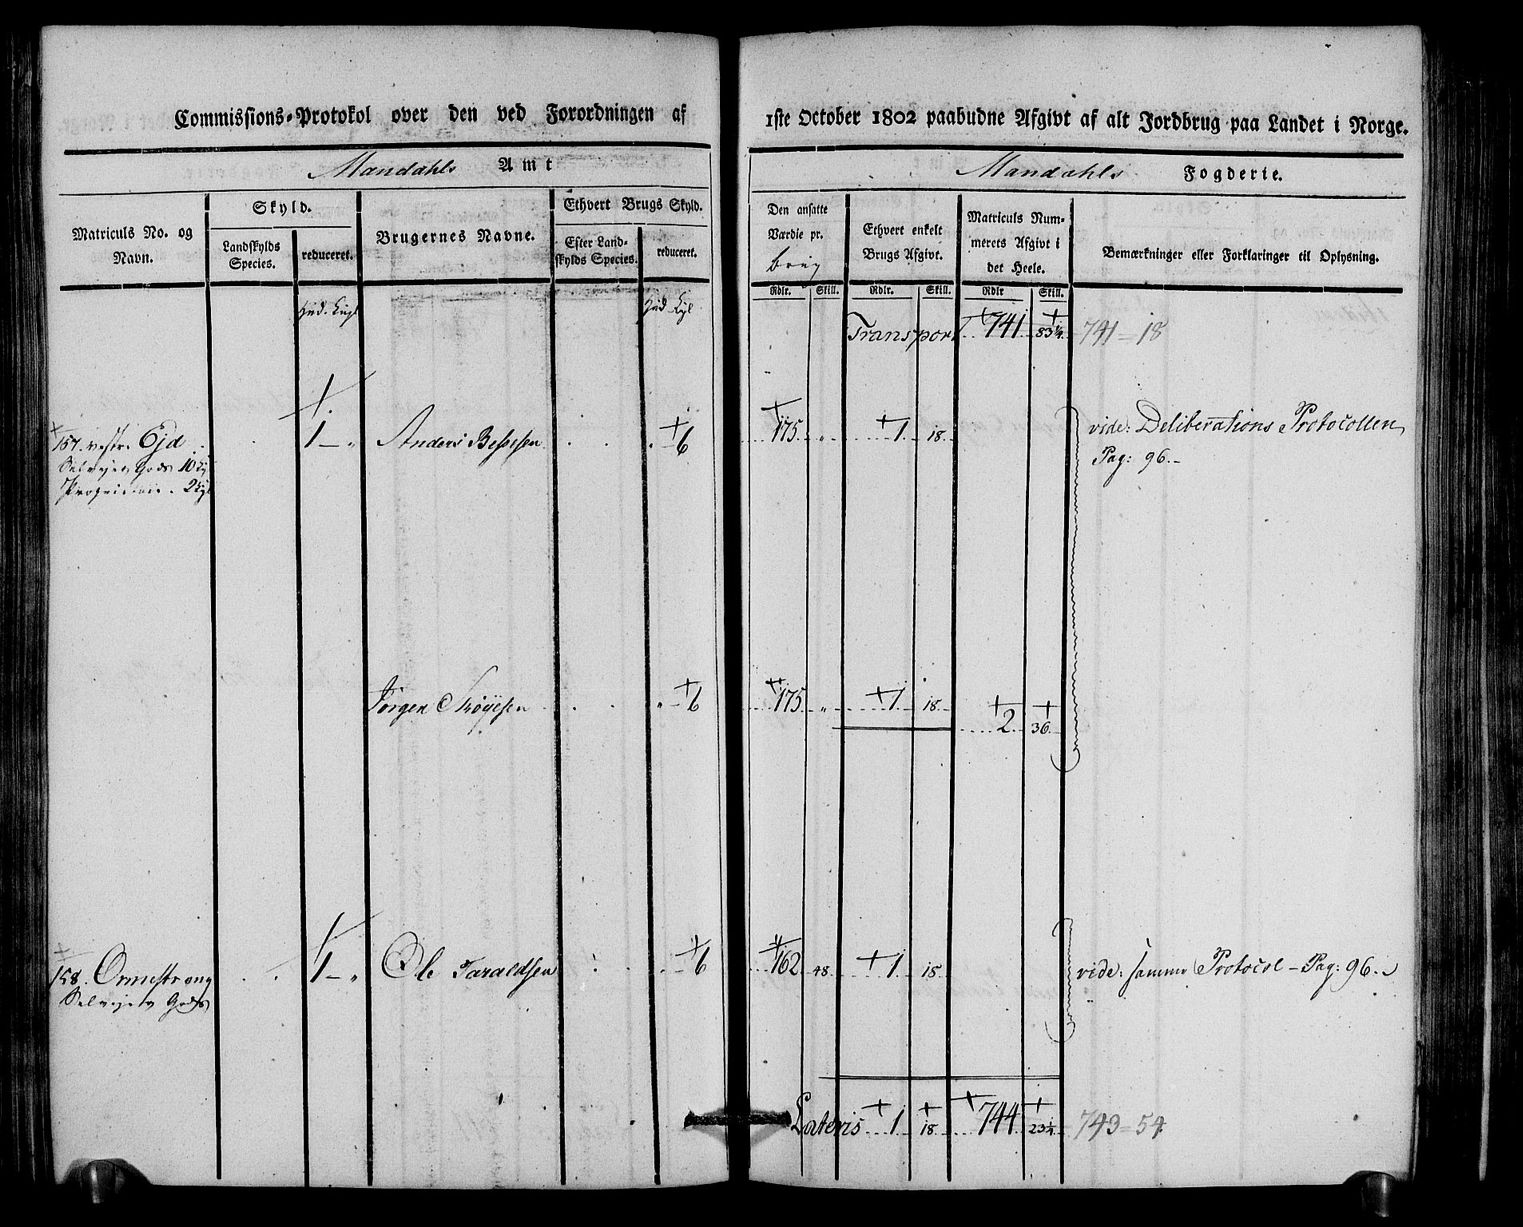 Commissions-Protokol over den ved Forordningen af 1ste October 1802 paabudne Afgivt af alt Jordbrug paa Landet i Norge.
Mandahls Amt Mandahls Fogderie.
Matriculs No. og Navn.
Skyld.
Landskylds Species.
reduceret.
Brugernes Navne.
Ethvert Brugs Skyld.
Efter Landskylds Species.
reduceret.
Den ansatte Værdie pr. brug
Ethvert enkelt Brugs Afgivt.
Matriculs Nummerets Afgivt i det Heele.
Bemærkninger eller Forklaringer til Oplysning.
Rdlr. Skill. Rdlr. Skill. Rdlr Skill.
Transport 741 83¼ 741=18
157. vestre Ejd 1 — „ Anders 6 175 „ 1 18 vide: Deliberations Protocollen
Selvejer Gods 10 Pag: 96.
Proprietair 2
Jørgen 6 175 „ 1 18 2 36
158. Ormestrong 1 — „ Ole Taraldsen 6 162 48 1 18 vide: samme Protocol – Pag: 96.
Selvejer Gods
Lateris 1 18 744 23¼ 743=54